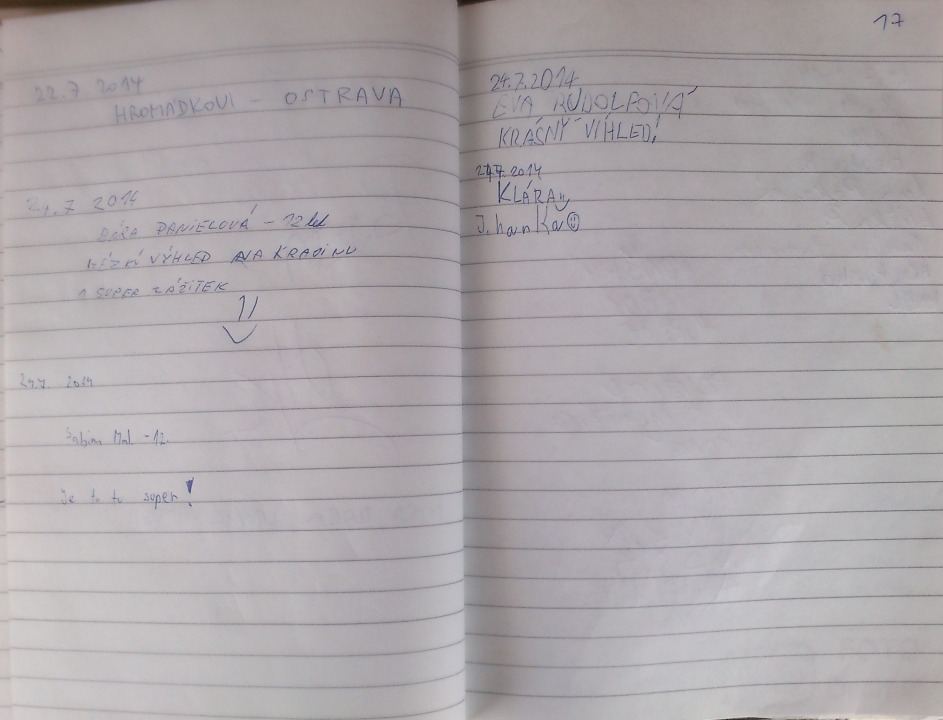 22.7 2014
HROMÁDKOVI - OSTRAVA
24.7 2014
DANIELOVÁ - 12 let
HEZKÍ VÝHLED NA KRAJINU
SUPER ZÁŽITEK
24.7. 2014
- 12.
Je to tu super!
17
24.7.2014
EVA RUDOLFOVÁ
KRÁSNÝ VÍHLED!
24.7. 2014
KLÁRA
J. hanka